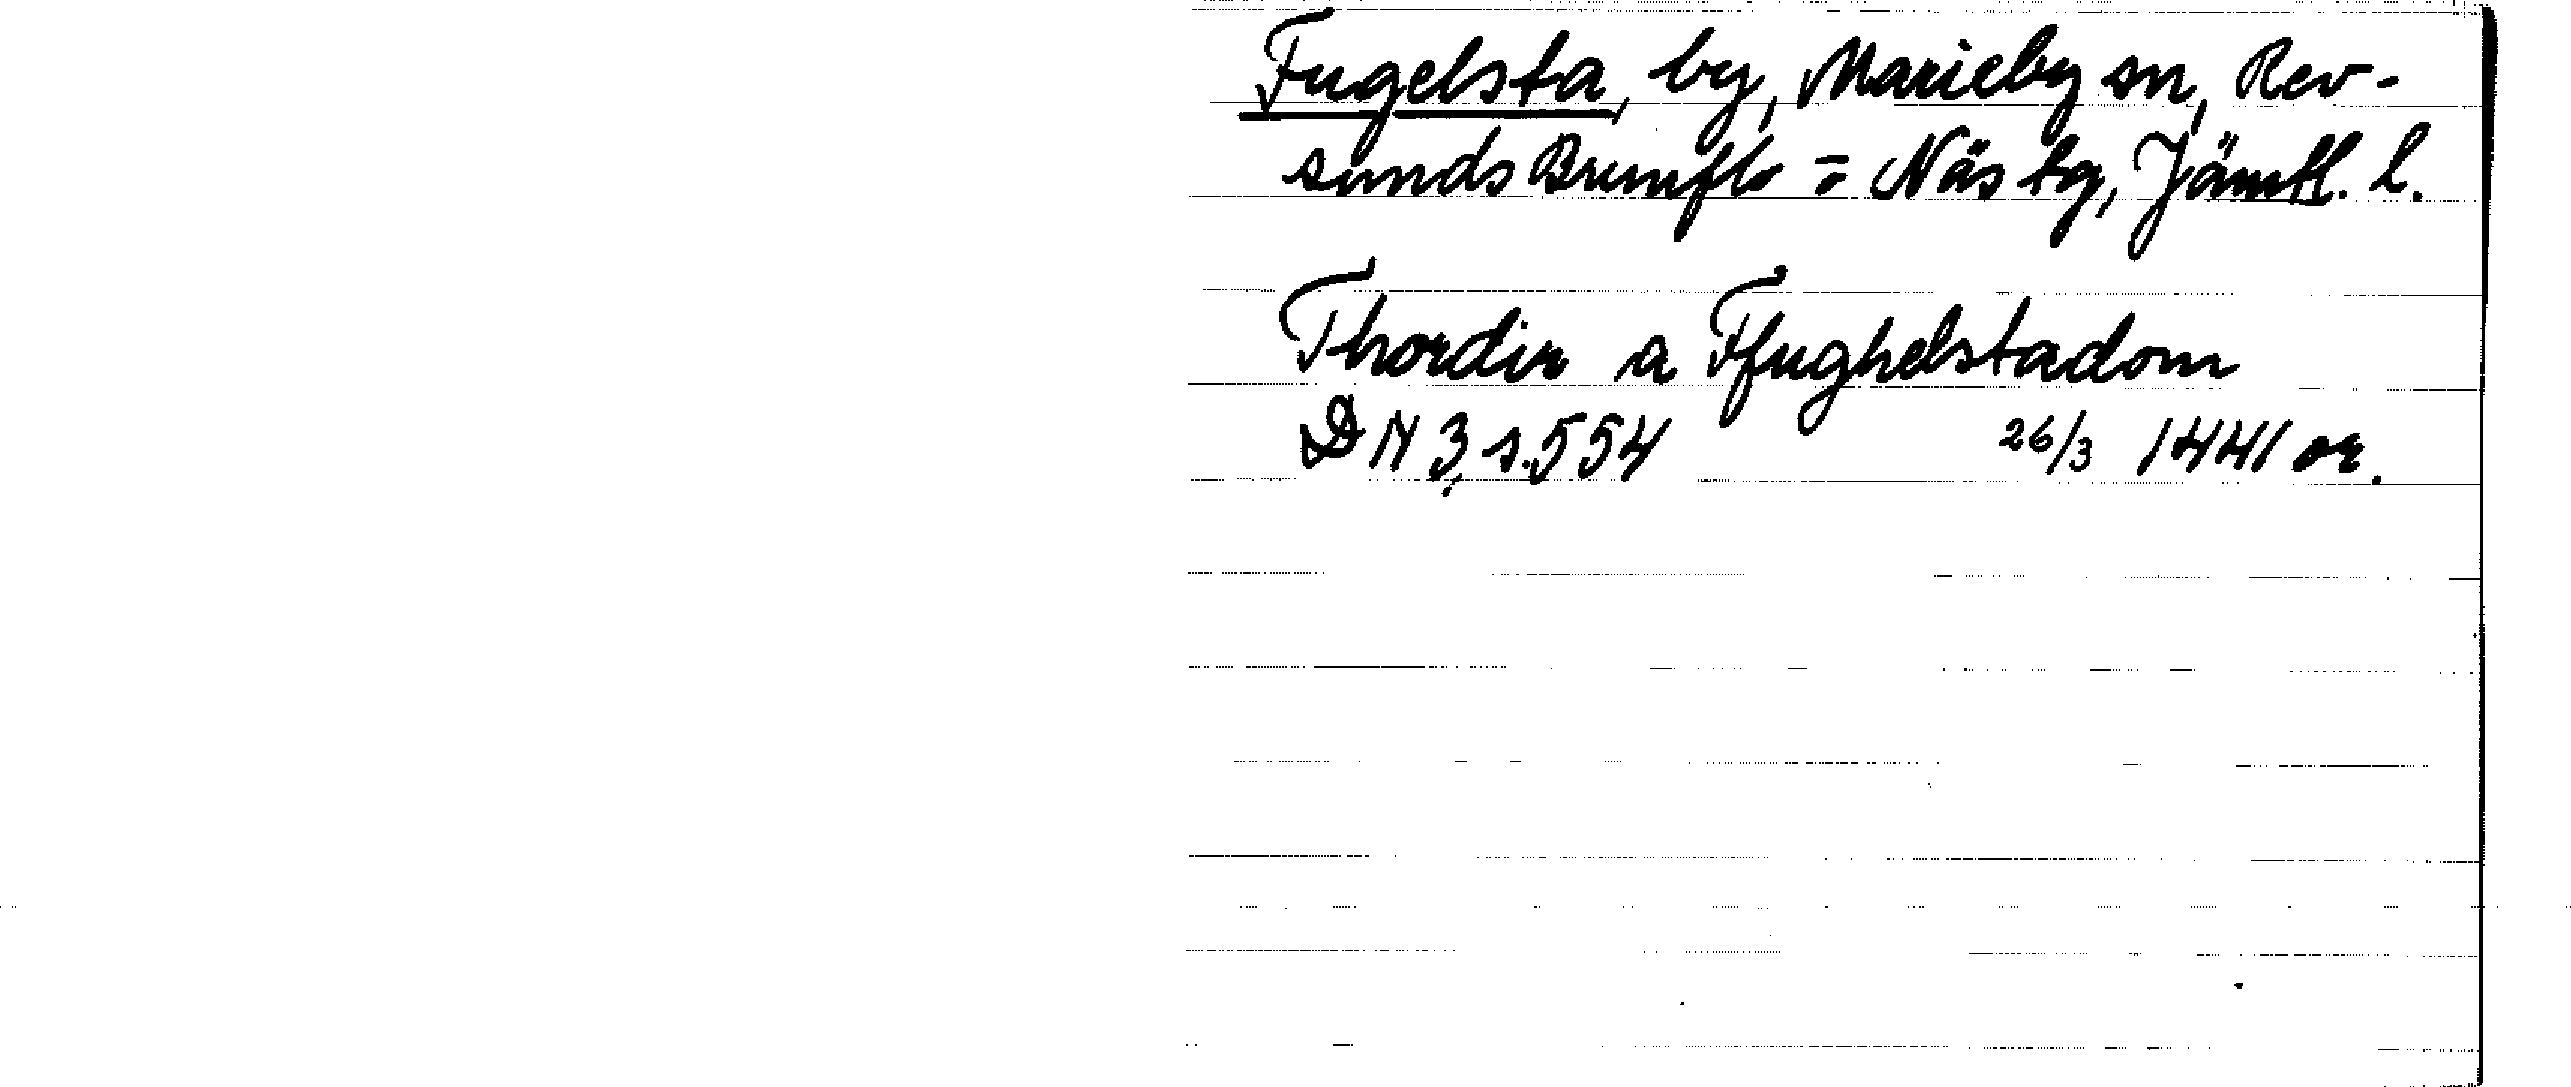 Fugelsta, by, Marieby sn, Rev-
sunds Brunflo = Näs tg, Jämtl. l.
Thordir a Ffughelstadom
DN 3, s. 554 26/3 1441 or.